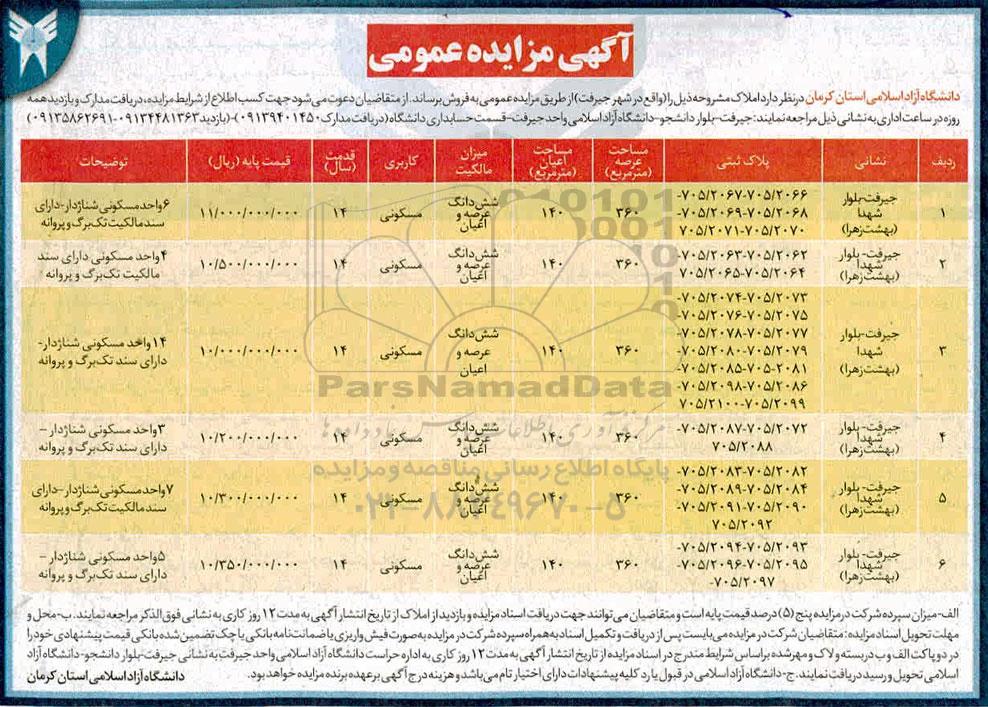 آگهی مزایده عمومی
دانشگاه آزاد اسلامی استان کرمان در نظر دارد املاک مشروحه ذیل را (واقع در شهر جیرفت) از طریق مزایده عمومی به فروش برساند. از متقاضیان دعوت می شود جهت کسب اطلاع از شرایط مزایده، دریافت مدارک و بازدید همه
روزه در ساعت اداری به نشانی ذیل مراجعه نمایند: جیرفت-بلوار دانشجو-دانشگاه آزاد اسلامی واحد جیرفت-قسمت حسابداری دانشگاه (دریافت مدارک ۰۹۱۳۹۴۰۱۴۵۰)-(بازدید ۰۹۱۳۴۴۸۱۳۶۳-۰۹۱۳۵۸۶۲۶۹۱)
ردیف نشانی پلاک ثبتی مساحت عرصه (مترمربع) مساحت اعیان (مترمربع) میزان مالکیت کاربری قدمت (سال) قیمت پایه (ریال) توضیحات
۱ جیرفت-بلوار شهدا (بهشت زهرا) ۷۰۵/۲۰۶۶-۷۰۵/۲۰۶۷-۷۰۵/۲۰۶۸-۷۰۵/۲۰۶۹-۷۰۵/۲۰۷۰-۷۰۵/۲۰۷۱ ۳۶۰ ۱۴۰ شش دانگ عرصه و اعیان مسکونی ۱۴ ۱۱/۰۰۰/۰۰۰/۰۰۰ ۶ واحد مسکونی شناژدار-دارای سند مالکیت تک برگ و پروانه
۲ جیرفت- بلوار شهدا (بهشت زهرا) ۷۰۵/۲۰۶۲-۷۰۵/۲۰۶۳-۷۰۵/۲۰۶۴-۷۰۵/۲۰۶۵ ۳۶۰ ۱۴۰ شش دانگ عرصه و اعیان مسکونی ۱۴ ۱۰/۵۰۰/۰۰۰/۰۰۰ ۴ واحد مسکونی دارای سند مالکیت تک برگ و پروانه
۳ جیرفت-بلوار شهدا (بهشت زهرا) ۷۰۵/۲۰۷۳-۷۰۵/۲۰۷۴-۷۰۵/۲۰۷۵-۷۰۵/۲۰۷۶-۷۰۵/۲۰۷۷-۷۰۵/۲۰۷۸-۷۰۵/۲۰۷۹-۷۰۵/۲۰۸۰-۷۰۵/۲۰۸۱-۷۰۵/۲۰۸۵-۷۰۵/۲۰۸۶-۷۰۵/۲۰۹۸-۷۰۵/۲۰۹۹-۷۰۵/۲۱۰۰ ۳۶۰ ۱۴۰ شش دانگ عرصه و اعیان مسکونی ۱۴ ۱۰/۰۰۰/۰۰۰/۰۰۰ ۱۴ واحد مسکونی شناژدار-دارای سند تک برگ و پروانه
۴ جیرفت- بلوار شهدا (بهشت زهرا) ۷۰۵/۲۰۷۲-۷۰۵/۲۰۸۷-۷۰۵/۲۰۸۸ ۳۶۰ ۱۴۰ شش دانگ عرصه و اعیان مسکونی ۱۴ ۱۰/۲۰۰/۰۰۰/۰۰۰ ۳ واحد مسکونی شناژدار - دارای سند تک برگ و پروانه
۵ جیرفت- بلوار شهدا (بهشت زهرا) ۷۰۵/۲۰۸۲-۷۰۵/۲۰۸۳-۷۰۵/۲۰۸۴-۷۰۵/۲۰۸۹-۷۰۵/۲۰۹۰-۷۰۵/۲۰۹۱-۷۰۵/۲۰۹۲ ۳۶۰ ۱۴۰ شش دانگ عرصه و اعیان مسکونی ۱۴ ۱۰/۳۰۰/۰۰۰/۰۰۰ ۷ واحد مسکونی شناژدار-دارای سند مالکیت تک برگ و پروانه
۶ جیرفت- بلوار شهدا (بهشت زهرا) ۷۰۵/۲۰۹۳-۷۰۵/۲۰۹۴-۷۰۵/۲۰۹۵-۷۰۵/۲۰۹۶-۷۰۵/۲۰۹۷- ۳۶۰ ۱۴۰ شش دانگ عرصه و اعیان مسکونی ۱۴ ۱۰/۳۵۰/۰۰۰/۰۰۰ ۵ واحد مسکونی شناژدار - دارای سند تک برگ و پروانه
ParsNamadData
پایگاه اطلاع رسانی مناقصه و مزایده
۰۲۱-۸۸۳۴۹۶۷۰-۵
الف-میزان سپرده شرکت در مزایده پنج (۵) درصد قیمت پایه است و متقاضیان می توانند جهت دریافت اسناد مزایده و بازدید از املاک از تاریخ انتشار آگهی به مدت ۱۲ روز کاری به نشانی فوق الذکر مراجعه نمایند. ب-محل و
مهلت تحویل اسناد مزایده: متقاضیان شرکت در مزایده می بایست پس از دریافت و تکمیل اسناد به همراه سپرده شرکت در مزایده به صورت فیش واریزی یا ضمانت نامه بانکی یا چک تضمین شده بانکی قیمت پیشنهادی خود را
در دو پاکت الف و ب در بسته و لاک و مهر شده بر اساس شرایط مندرج در اسناد مزایده از تاریخ انتشار آگهی به مدت ۱۲ روز کاری به اداره حراست دانشگاه آزاد اسلامی واحد جیرفت به نشانی جیرفت-بلوار دانشجو- دانشگاه آزاد
اسلامی تحویل و رسید دریافت نمایند. ج- دانشگاه آزاد اسلامی در قبول یا رد کلیه پیشنهادات دارای اختیار تام می باشد و هزینه درج آگهی بر عهده برنده مزایده خواهد بود.
دانشگاه آزاد اسلامی استان کرمان